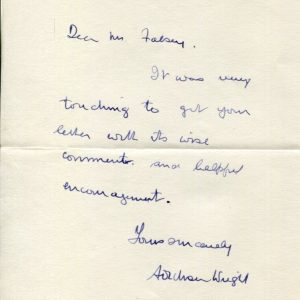 Dear Mr
It was very
touching to get your
letter with its wise
comments and helpful
encouragement.
Yours sincerely
Wright